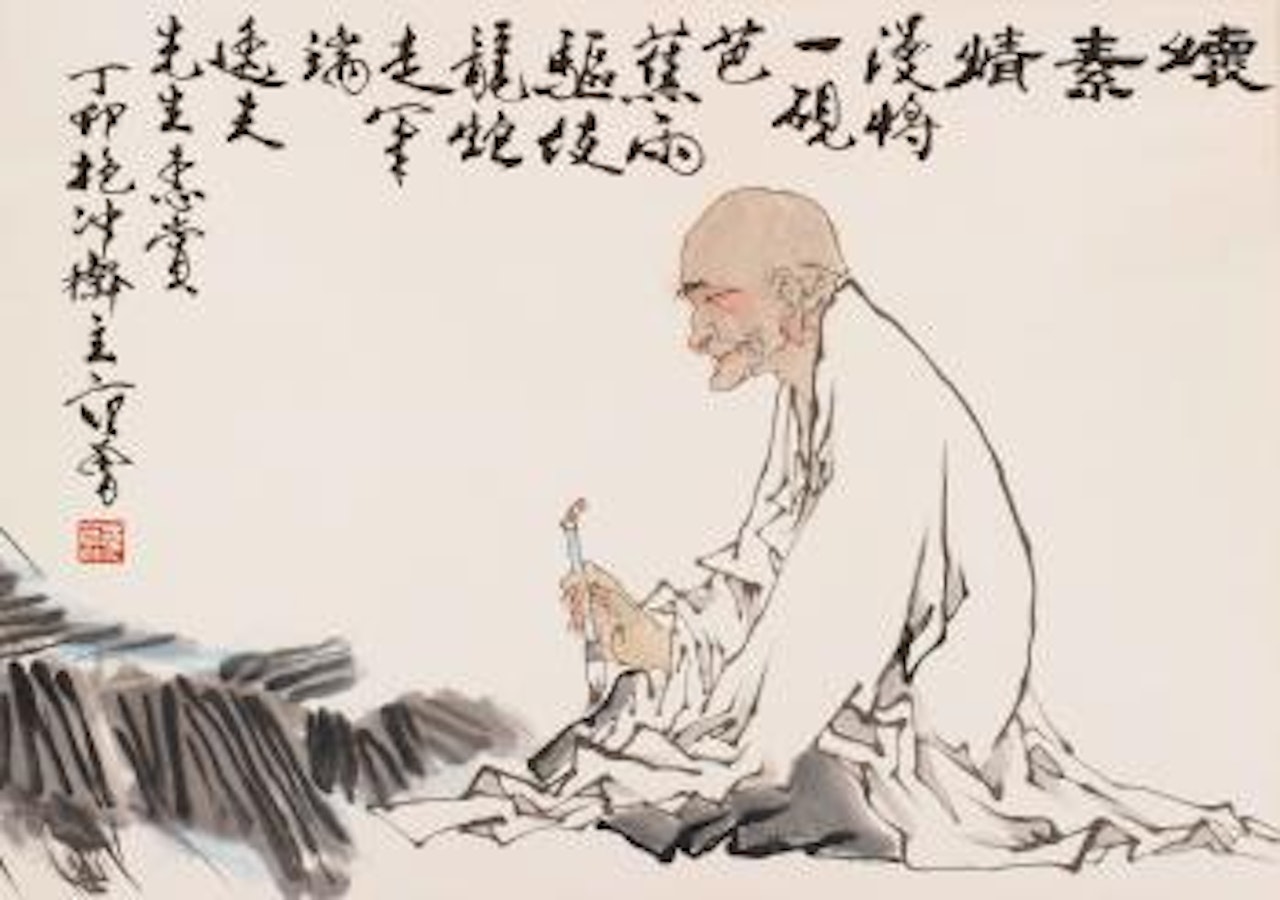 懷素情
漫將
一硯
芭
蕉雨
驅使
龍蛇
走筆
端
夫
先生惠賞
丁卯抱冲齋主范曾